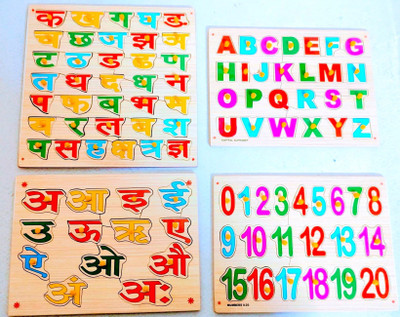 क ख ग घ ङ
च छ ज झ ञ
ट ठ ड ढ ण
त थ द ध न
प फ ब भ म
य र ल व श
ष स ह क्ष त्र ज्ञ
A B C D E F G
H I J K L M N
O P Q R S T
U V W X Y Z
अ आ इ ई
उ ऊ ऋ ए
ऐ ओ औ
अं अः
0 1 2 3 4 5 6 7 8
9 10 11 12 13 14
15 16 17 18 19 20